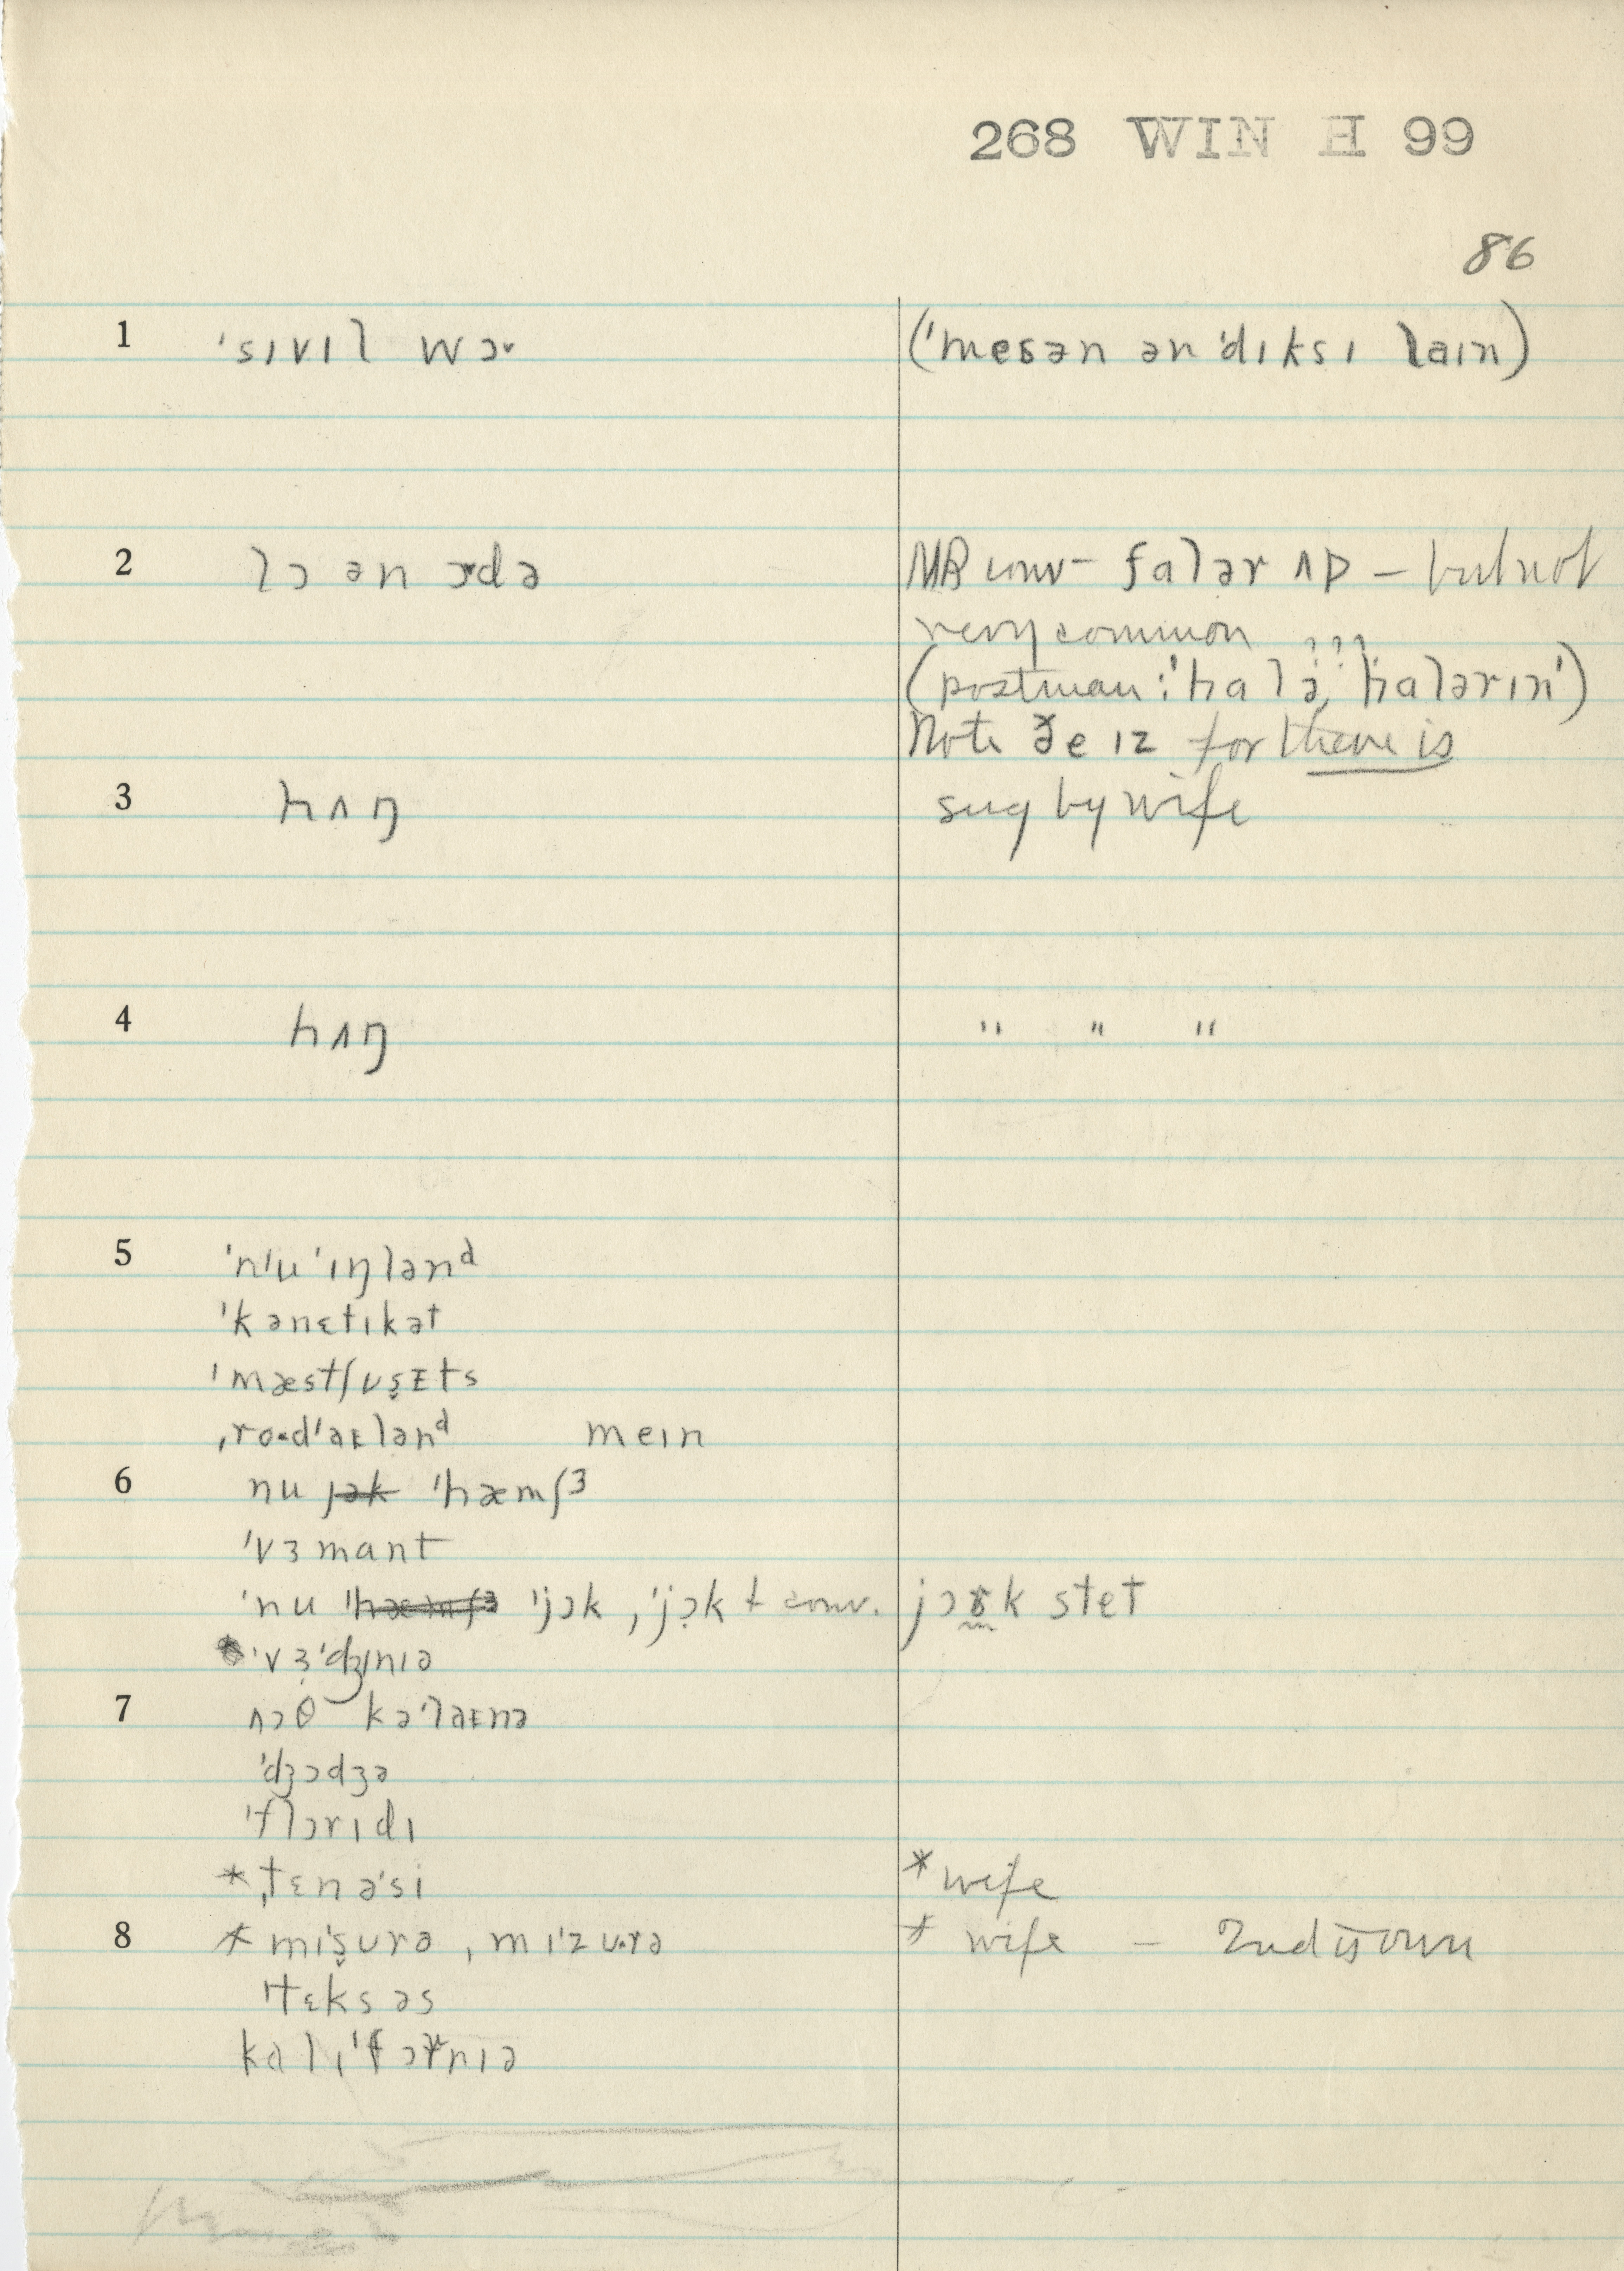 268 WIN H 99
86
1 ˈsɪvɪl wɔ˞ (ˈmesən ən ˈdɪksɪ laɪn)
2 lɔ ən ɔ˞də MR conv– fɑlər ʌp – but not
very common
(postman: ˈhɑlə, ˈhɑlərɪn')
Note ðe ɪz for there is
3 hʌŋ sug by wife
4 hʌŋ " " "
5 ˈnɪu ˈɪŋlənᵈ
ˈkənɛtɪkət
ˈmæstʃʊs̬ᴇts
ˌro·dˈaᴇlənᵈ meɪn
6 nu jək ˈhæmʃɜ
ˈvɜmant
ˈnu ˈhæmʃɜ ˈjɔk , ˈjɔ̣k + conv. jɔɤk stet
*ˈvɜ̣ˈdʒɪnɪə
7 nɔθ kəˈlaᴇnə
ˈdʒɔdʒə
ˈflɔrɪdɪ
*ˌtɛnəˈsi *wife
8 *mɪˈs̬ʊrə , mɪˈzʊ·rə * wife – 2nd is own
ˈtɛksəs
kalɪˈfɔrnɪə